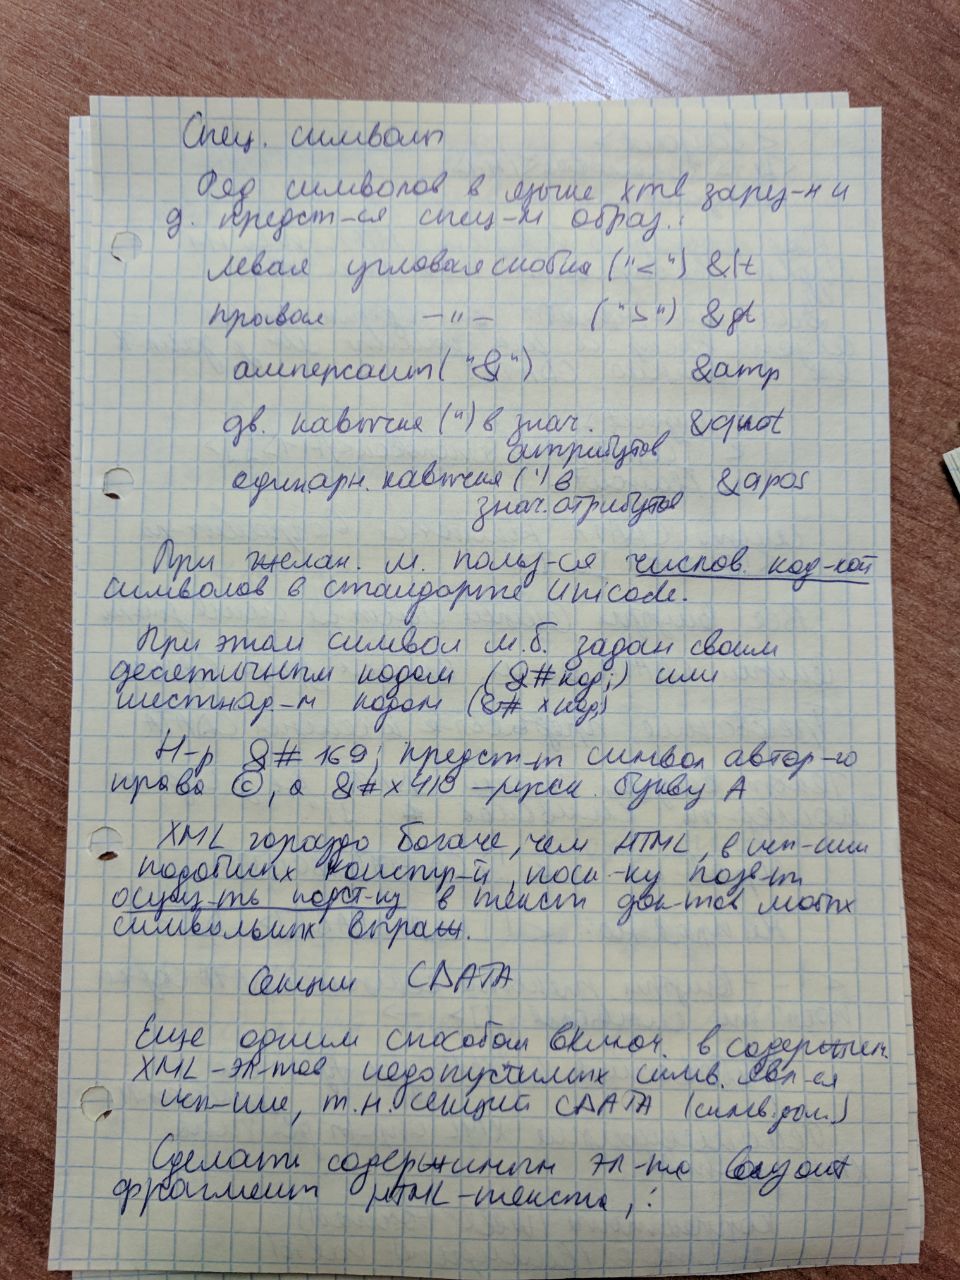 Спец. символы
Ряд символов в языке XML зарез-н и
д. предст-ся спец-м образ.:
левая угловая скобка ("<") &lt
правая —"— (">") &gt
амперсант ("&") &amp
дв. кавычка (") в знач. &quot
аттрибутов
единарн. кавычка (') в &apos
знач. атрибутов
При желан. м. польз-ся числов. код-кой
символов в стандарте Unicode.
При этом символ м.б. задан своим
десятичным кодом (&#код;) или
шестнад-м кодом (&#xкод;)
Н-р &#169; предст-т символ автор-го
права ©, а &#x410 – русск. букву А
XML гораздо богаче, чем HTML, в исп-нии
подобных констр-й, поск-ку позв-т
осущ-ть подст-ку в текст док-тов любых
символьных выраж.
Секции CDATA
Еще одним способом включ. в содержен.
XML-эл-тов недопустимых симв. явл-ся
исп-ние, т.н. секций CDATA (симв. дан.)
Сделать содержимым эл-та
фрагмент HTML-текста, :